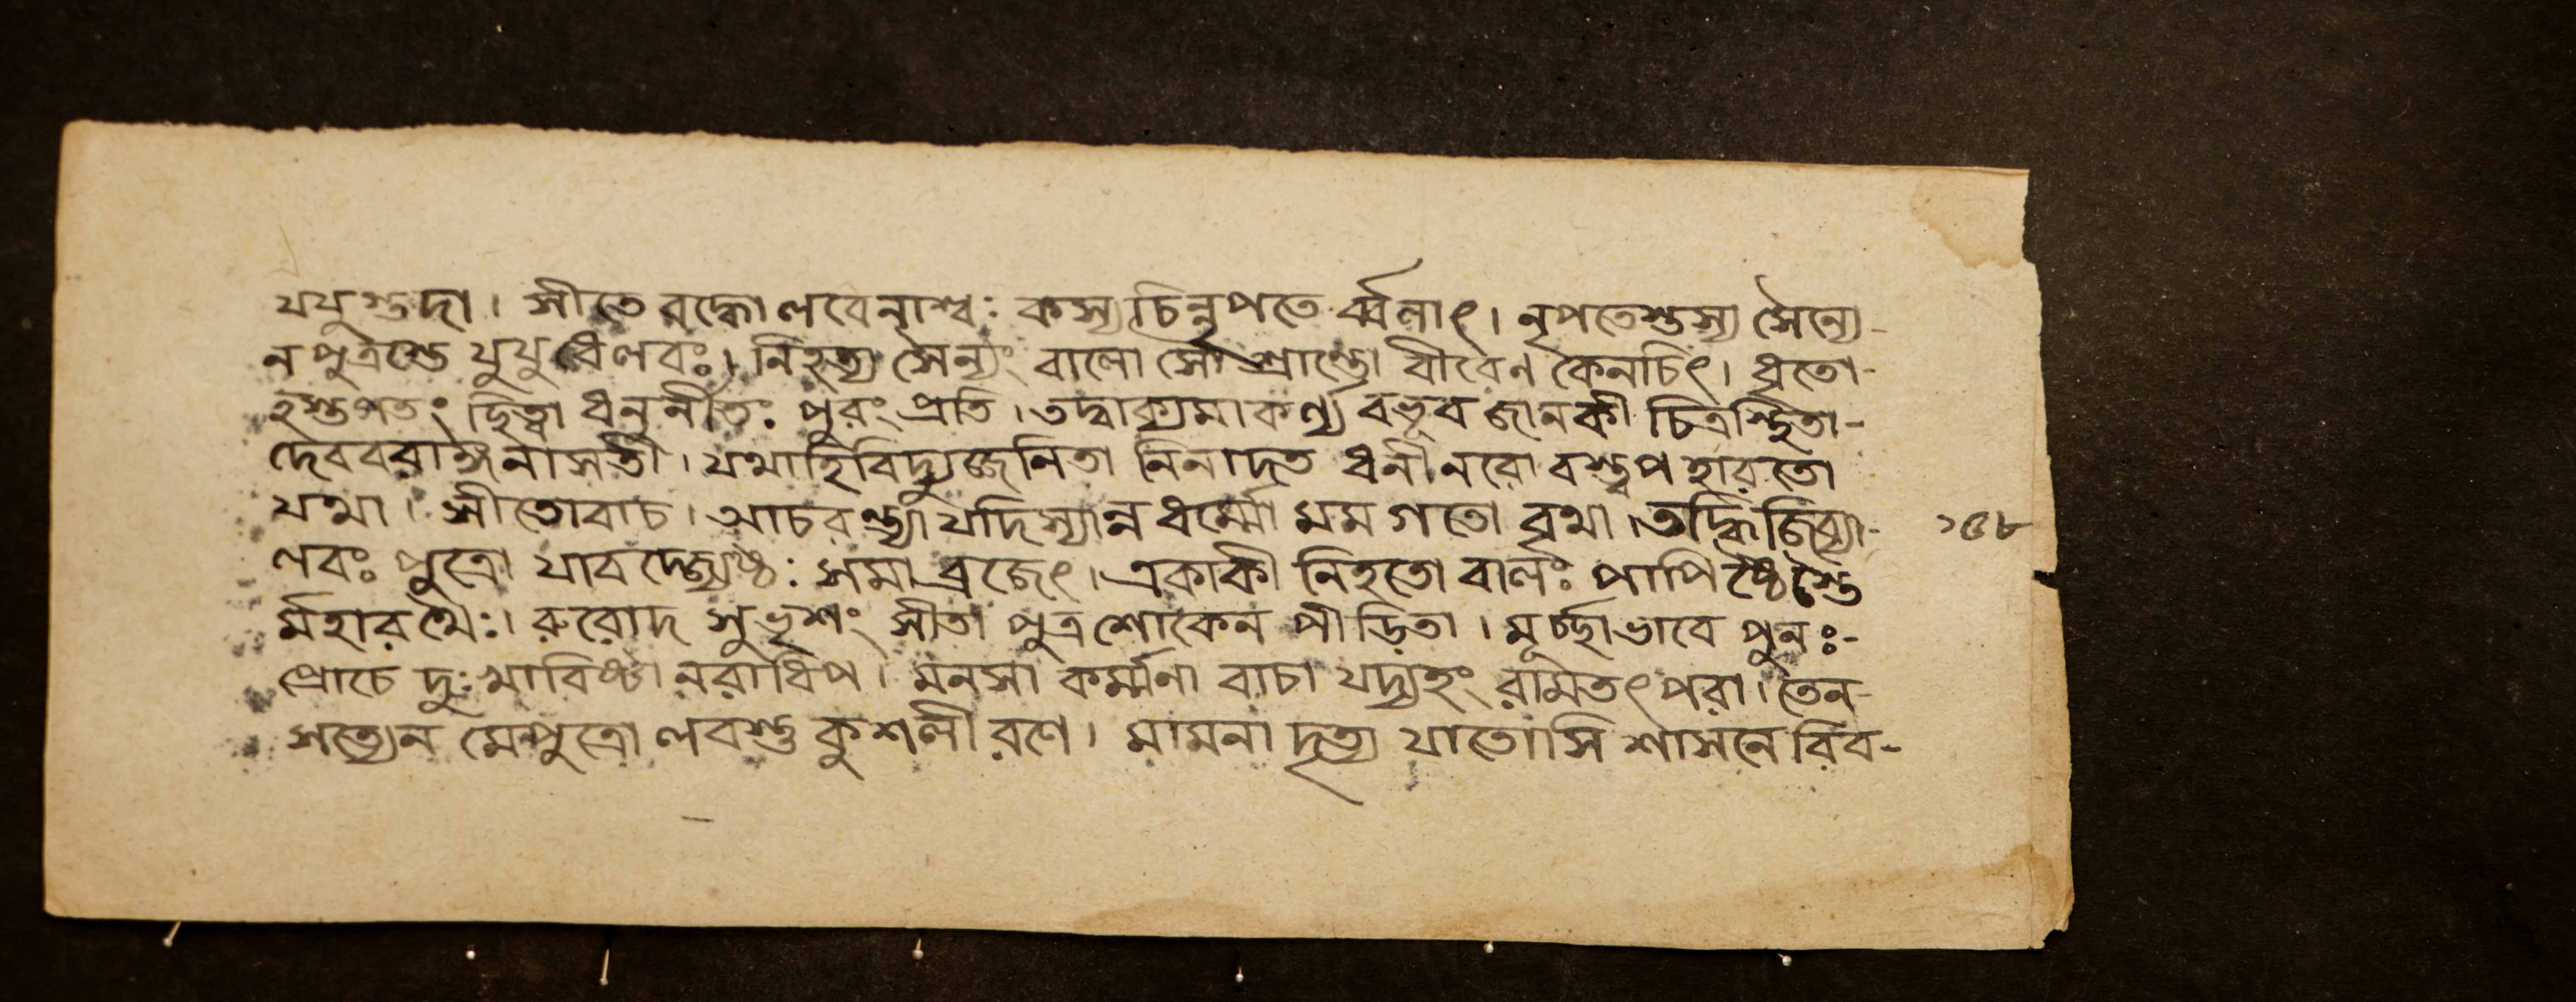 যযুস্তদা। সীতে বদ্ধো লবেনাশ্ব: কস্যচিন্নৃপতে র্ব্বলাৎ। নৃপতেস্তস্য সৈন্যে-
ন পুত্রস্তে যুযুধে লবঃ। নিহত্য সৈন্যং বালো সৌ শ্রান্তো বীরেণ কেনচিৎ। ধৃতো-
হস্তগতং ছিত্বা ধনুর্নীতঃ পুরং প্রতি। তদ্বাক্যমাকর্ণ্য বভূব জানকী চিত্রস্থিতা-
দেববরাঙ্গনাসতী। যথাহিবিদ্যুজ্জনিতা নিনাদত ধনী নরো বস্ত্বপহারতো
যথা। সীতোবাচ। আচরন্ত্যা যদিস্যান্ন ধর্ম্মো মম গতো বৃথা।
লবঃ পুত্রো যাবজ্জ্যেষ্ঠ: সমাব্রজেৎ। একাকী নিহতো বালঃ পাপিষ্ঠৈস্তৈ
র্মহারথৈঃ। রুরোদ সুভৃশং সীতা পুত্রশোকেন পীড়িতা। মূর্চ্ছাভাবে পুনঃ-
প্রোচে দু:খাবিষ্টা নরাধিপ। মনসা কর্ম্মনা বাচা যদ্যহং রামতৎপরা। তেন-
সত্যেন মেপুত্রো লবস্তু কুশলী রণে। মামনাদৃত্য যাতোসি শাসনে বিব-
১৫৮